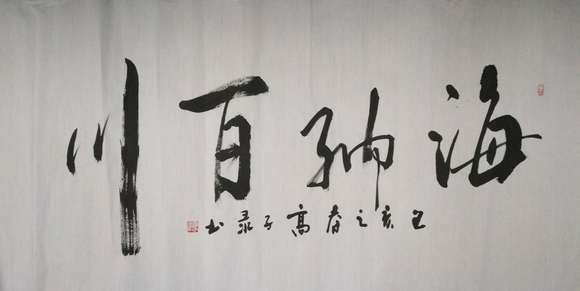 海纳百川
己亥之春高子书